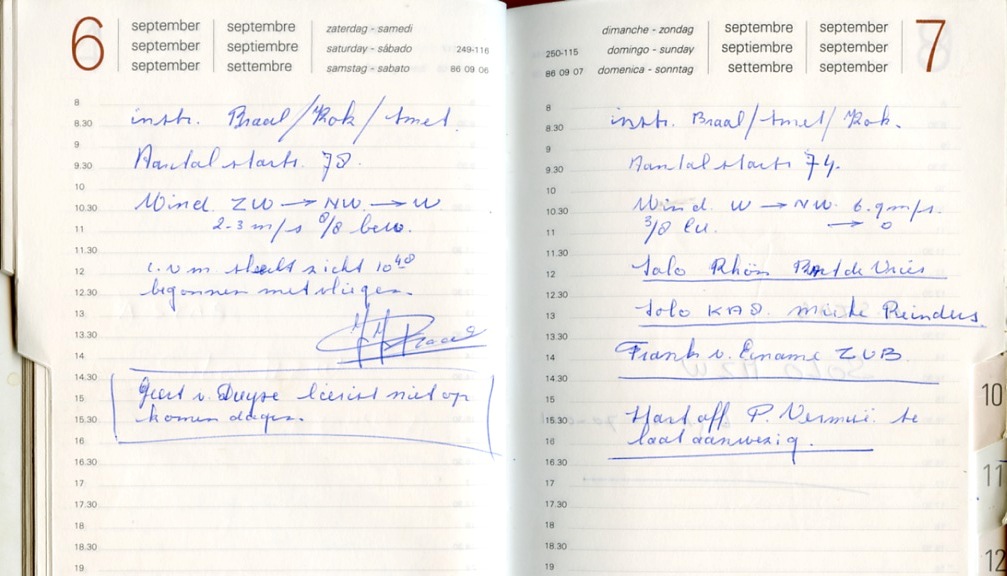 6
september september zaterdag - samedi
september septiembre saturday - sábado 249-116
september settembre samstag - sabato 86 09 06
8
8.30 instr. Braal/Kok/Smet.
9
9.30 Aantal starts. 78.
10
10.30 Wind. ZW → NW. → W.
11 2-3 m/s 8/8 bew.
11.30
12 i.v.m. slecht zicht 10 48
12.30 begonnen met vliegen.
13
13.30
14
14.30
15 Geert v. Duyse lierist niet op
15.30 komen dagen.
16
16.30
17
17.30
18
18.30
19
dimanche - zondag september september 7
250-115 domingo - sunday septiembre september
86 09 07 domenica - sonntag settembre september
8
8.30 instr. Braal/Smet/Kok.
9
9.30 Aantal starts 74.
10
10.30 Wind. W → NW. 6.9 m/s.
11 3/8 Cu. → 0
11.30
12 Solo Rhön Bart de Vries
12.30
13 Solo KA8. Reinders
13.30
14 Frank v. ZUB.
14.30
15
15.30 P. te
16 laat aanwezig.
16.30
17
17.30
18
18.30
19
10
11
12